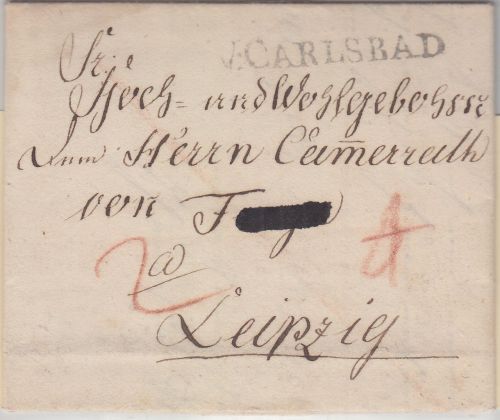 V. CARLSBAD
Sr.
Hoch- und Wohlgebohrn
Dem Herrn Cam̅errath
von
a
Leipzig